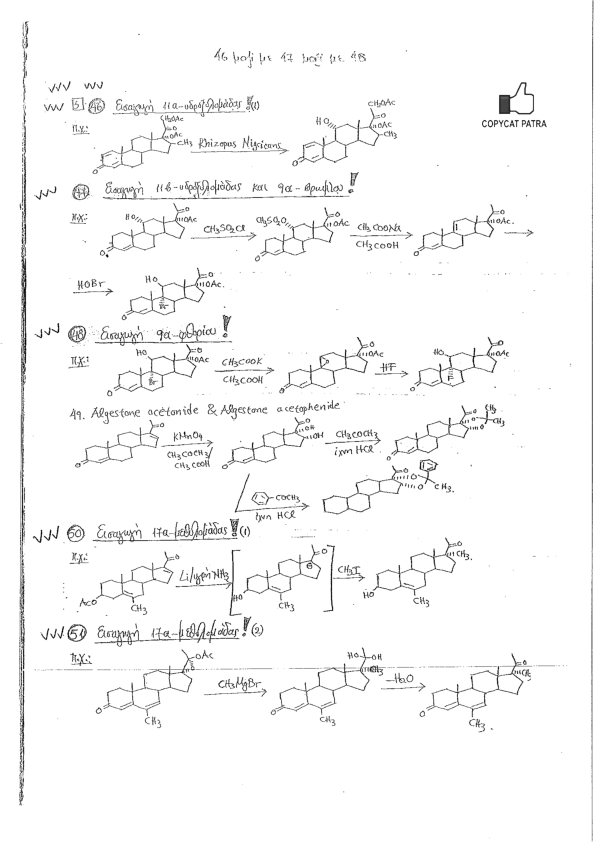 46 μαζί με 47 μαζί με 48
COPYCAT PATRA
5. 46 Εισαγωγή 11α-υδροξυλομάδας! (1)
π.χ:
CH2OAc
O
OAc
CH3
Rhizopus Nigricans
HO
CH2OAc
O
OAc
CH3
O
O
47 Εισαγωγή 11β-υδροξυλομάδας και 9α-βρωμίου!
π.χ:
HO
O
OAc
CH3SO2Cl
CH3SO2O
O
OAc
CH3COONa
CH3COOH
O
OAc.
O
O
O
HOBr
HO
O
OAc.
Br
O
48 Εισαγωγή 9α-φθορίου!
π.χ:
HO
O
OAc
Br
O
CH3COOK
CH3COOH
O
O
OAc
O
HF
HO
O
OAc
F
O
49. Algestone acetonide & Algestone acetophenide
O
O
KMnO4
CH3COCH3/
CH3COOH
O
OH
OH
O
CH3COCH3
ίχνη HCl
O
CH3
CH3
O
COCH3
ίχνη HCl
O
CH3.
50 Εισαγωγή 17α-μεθυλομάδας! (1)
π.χ:
O
AcO
CH3
Li/υγρή NH3
O
HO
CH3
CH3I
O
CH3.
HO
CH3
51 Εισαγωγή 17α-μεθυλομάδας! (2)
π.χ:
OAc
O
CH3
CH3MgBr
HO
OH
CH3
O
CH3
-H2O
O
CH3
O
CH3.